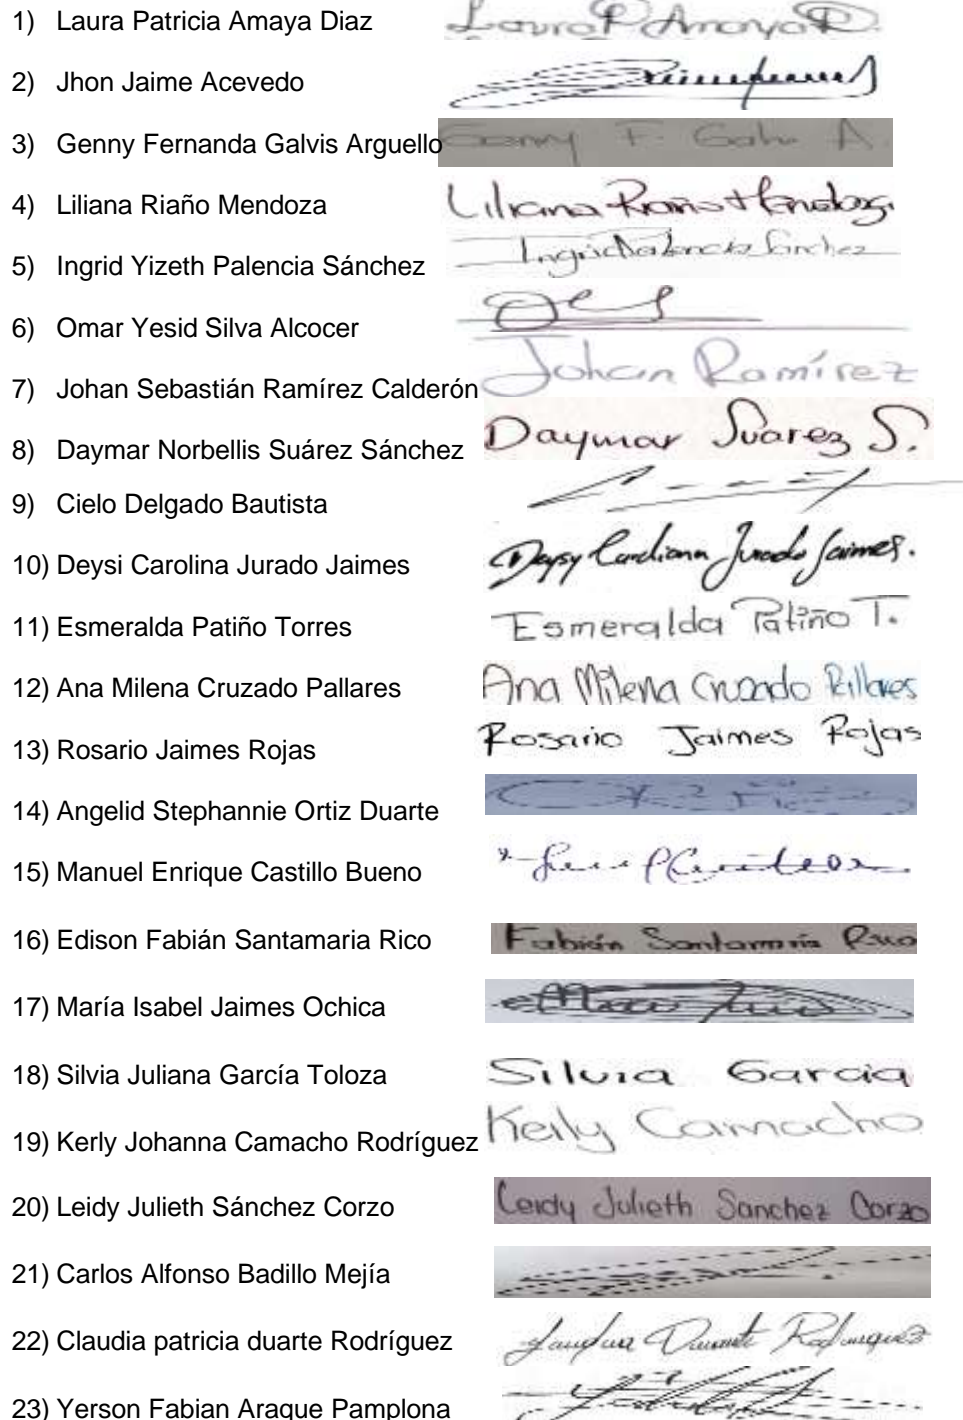 1) Laura Patricia Amaya Diaz Laura P Amaya D.
2) Jhon Jaime Acevedo
3) Genny Fernanda Galvis Arguello Genny F. Galvis A.
4) Liliana Riaño Mendoza Liliana Riaño Mendoza.
5) Ingrid Yizeth Palencia Sánchez Ingrid Palencia Sánchez
6) Omar Yesid Silva Alcocer
7) Johan Sebastián Ramírez Calderón Johan Ramírez
8) Daymar Norbellis Suárez Sánchez Daymar Suarez S.
9) Cielo Delgado Bautista
10) Deysi Carolina Jurado Jaimes Deysy Jurado Jaimes.
11) Esmeralda Patiño Torres Esmeralda Patiño T.
12) Ana Milena Cruzado Pallares Ana Milena Cruzado Pillares
13) Rosario Jaimes Rojas Rosario Jaimes Rojas
14) Angelid Stephannie Ortiz Duarte
15) Manuel Enrique Castillo Bueno
16) Edison Fabián Santamaria Rico Fabián Santamaría Rico
17) María Isabel Jaimes Ochica
18) Silvia Juliana García Toloza Silvia Garcia
19) Kerly Johanna Camacho Rodríguez Kerly Camacho
20) Leidy Julieth Sánchez Corzo Leidy Julieth Sanchez Corzo
21) Carlos Alfonso Badillo Mejía
22) Claudia patricia duarte Rodríguez Duarte Rodriguez
23) Yerson Fabian Araque Pamplona